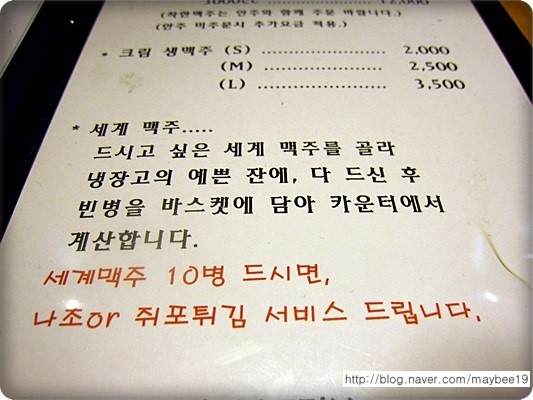 3000cc 12,000
(착한맥주는 안주와 함께 주문 바랍니다.)
(안주 미주문시 추가요금 적용.)
* 크림 생맥주 (S) .................... 2,000
(M) .................... 2,500
(L) .................... 3,500
* 세계 맥주.....
드시고 싶은 세계 맥주를 골라
냉장고의 예쁜 잔에, 다 드신 후
빈병을 바스켓에 담아 카운터에서
계산합니다.
세계맥주 10병 드시면,
나조or 쥐포튀김 서비스 드립니다.
http://blog.naver.com/maybee19